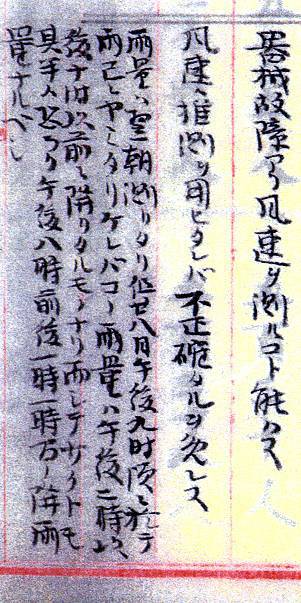 器械故障アリ風速ヲ測ルコト能ハス
風速ハ推測ヲ用ヒタレバ不正確タルヲ免レス
雨量ハ翌朝測リタリ但廿八日午後九時頃ニ於テ
雨已ニヤミタリケレバコノ雨量ハ午後二時以
後十時以前ニ降リタルモノナリ而シテサクトモ
其半ハ恐ラク午後八時前後一時一時万ノ降雨
量ナルベシ